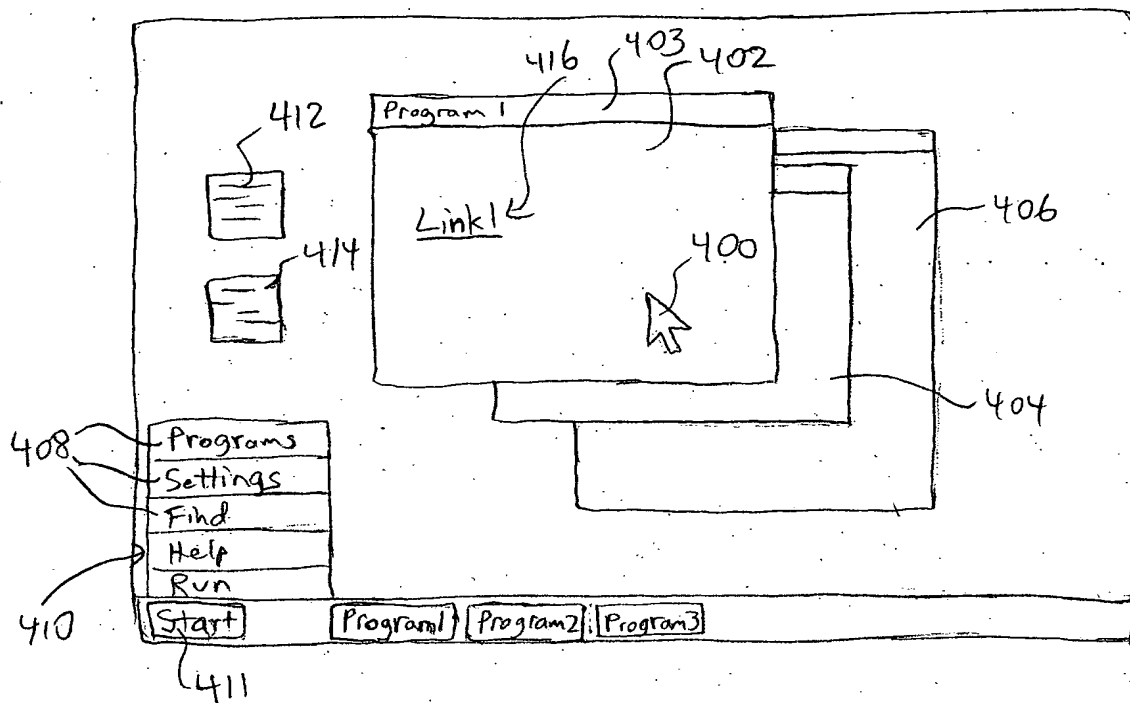 416 403 402
412
Program 1
Link1
406
414
400
404
408
Programs
Settings
Find
Help
Run
410
Start Program1 Program2 Program3
411